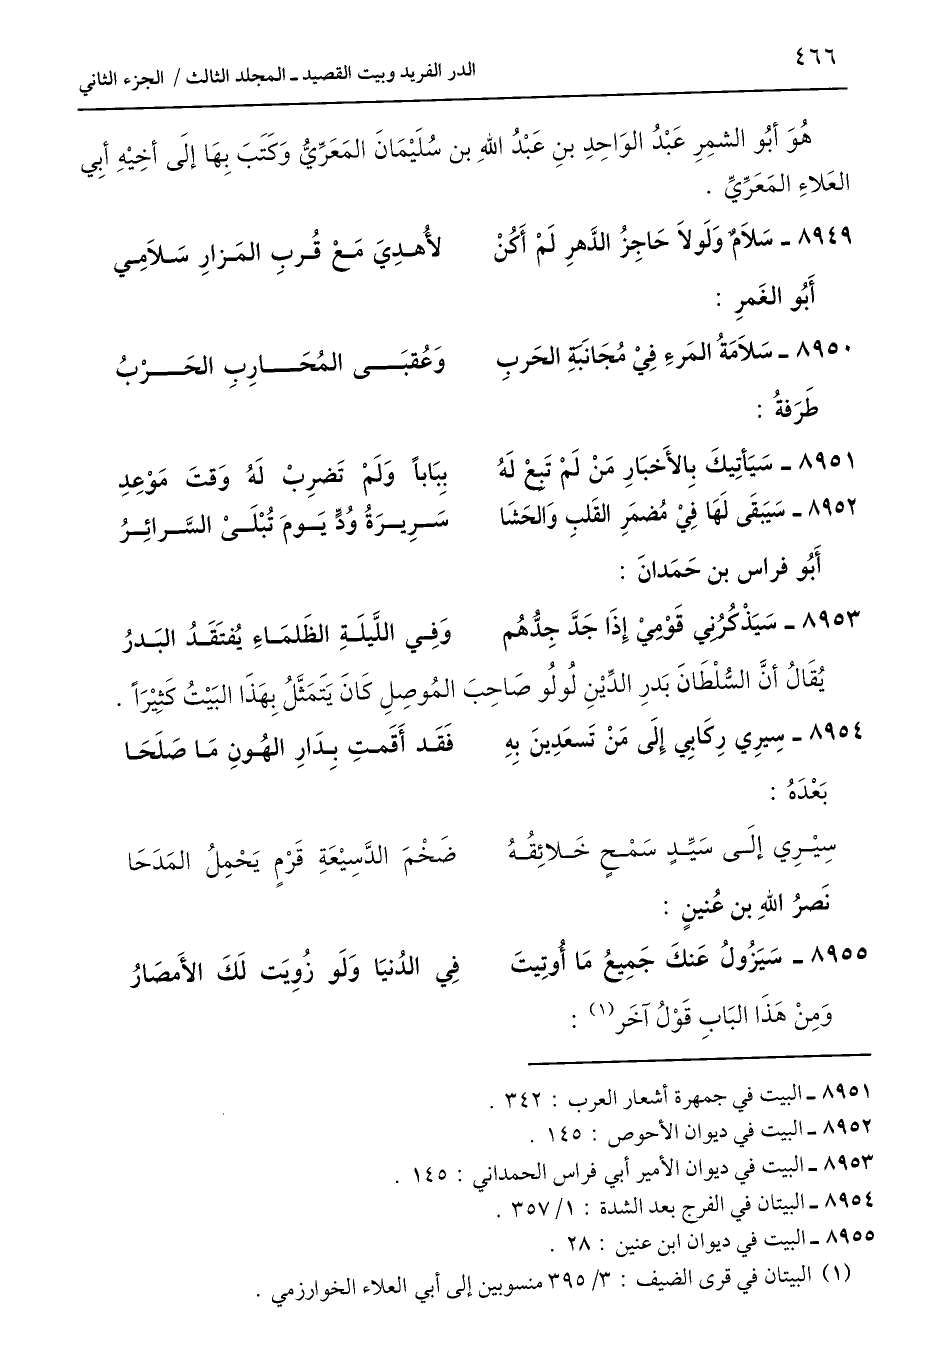 ٤٦٦
الدر الفريد وبيت القصيد ـ المجلد الثالث / الجزء الثاني
هُوَ أَبُو الشمِرِ عَبْدُ الوَاحِدِ بنِ عَبْدُ اللهِ بن سُلَيْمَانَ المَعَرِّيُّ وَكَتَبَ بِهَا إلَى أخِيْهِ أبِي
العَلاءِ المَعَرِّيِّ .
٨٩٤٩ ـ سَلاَمٌ وَلَولاَ حَاجِزُ الدَّهرِ لَمْ أَكُنْ لأُهـدِيَ مَـعْ قُـربِ المَـزارِ سَـلاَمِـي
أَبُو الغَمرِ :
٨٩٥٠ ـ سَلاَمَةُ المَرءِ فِيْ مُجَانَبَةِ الحَربِ وَعُقبَـــى المُحَـــارِبِ الحَـــرْبُ
طَرَفةُ :
٨٩٥١ ـ سَيَأتِيكَ بِالأخبَارِ مَنْ لَمْ تَبِعْ لَهُ بِبَاباً وَلَمْ تَضرِبْ لَهُ وَقتَ مَوْعِدِ
٨٩٥٢ ـ سَيَبقَى لَهَا فِيْ مُضمَرِ القَلبِ وَالحَشَا سَـرِيـرَةُ وُدٍّ يَـومَ تُبْلَـىْ السَّـرائِـرُ
أَبُو فراس بن حَمَدانَ :
٨٩٥٣ ـ سَيَذْكُرُنِي قَوْمِيْ إِذَا جَدَّ جِدُّهُم وَفِـي اللَّيلَـةِ الظَلمَـاءِ يُفتَقَـدُ البَـدرُ
يُقَالُ أنَّ السُّلْطَانَ بَدرِ الدَّيْنِ لُولُو صَاحِبَ المُوصِلِ كَانَ يَتَمَثَّلُ بِهَذَا البَيْتُ كَثِيْرَاً .
٨٩٥٤ ـ سِيرِي رِكَابِي إِلَى مَنْ تَسعَدِينَ بِهِ فَقَـد أَقَمـتِ بِـدَارِ الهُـونِ مَـا صَلَحَـا
بَعْدَهُ :
سِيْـرِي إلَـى سَيِّـدٍ سَمْـحٍ خَـلائِقُـهُ ضَخْمَ الدَّسِيْعَةِ قَرْمٍ يَحْمِلُ المَدَحَا
نَصرُ اللهِ بن عُنينٍ :
٨٩٥٥ ـ سَيَزُولُ عَنكَ جَمِيعُ مَا أُوتِيتَ فِي الدُنيَا وَلَو زُوِيَت لَكَ الأَمصَارُ
وَمِنْ هَذَا البَابِ قَوْلُ آخَر (١) :
٨٩٥١ ـ البيت في جمهرة أشعار العرب : ٣٤٢ .
٨٩٥٢ ـ البيت في ديوان الأحوص : ١٤٥ .
٨٩٥٣ ـ البيت في ديوان الأمير أبي فراس الحمداني : ١٤٥ .
٨٩٥٤ ـ البيتان في الفرج بعد الشدة : ١/ ٣٥٧ .
٨٩٥٥ ـ البيت في ديوان ابن عنين : ٢٨ .
(١) البيتان في قرى الضيف : ٣/ ٣٩٥ منسوبين إلى أبي العلاء الخوارزمي .